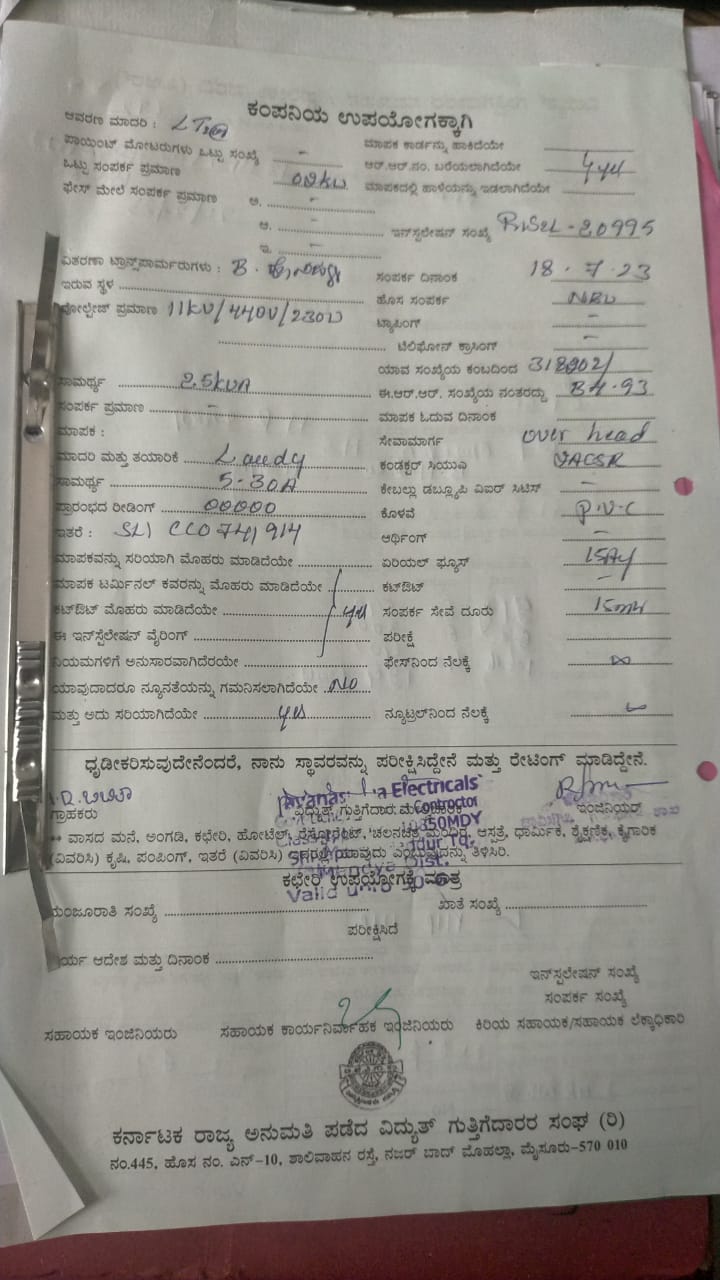 ಕಂಪನಿಯ ಉಪಯೋಗಕ್ಕಾಗಿ
ಆವರಣ ಮಾದರಿ :
ಪಾಯಿಂಟ್ ಮೋಟರುಗಳು ಒಟ್ಟು ಸಂಖ್ಯೆ -
ಮಾಪಕ ಕಾರ್ಡನ್ನು ಹಾಕಿದೆಯೇ
ಒಟ್ಟು ಸಂಪರ್ಕ ಪ್ರಮಾಣ
ಆರ್.ಆರ್.ನಂ. ಬರೆಯಲಾಗಿದೆಯೇ yes
ಫೇಸ್ ಮೇಲೆ ಸಂಪರ್ಕ ಪ್ರಮಾಣ ಅ. -
ಮಾಪಕದಲ್ಲಿ ಹಾಳೆಯನ್ನು ಇಡಲಾಗಿದೆಯೇ
ಆ. -
ಇನ್‌ಸ್ಟಲೇಷನ್ ಸಂಖ್ಯೆ
ಇ. -
ವಿತರಣಾ ಟ್ರಾನ್ಸ್‌ಫಾರ್ಮರುಗಳು :
ಸಂಪರ್ಕ ದಿನಾಂಕ 18.7.23
ಇರುವ ಸ್ಥಳ
ಹೊಸ ಸಂಪರ್ಕ
ವೋಲ್ಟೇಜ್ ಪ್ರಮಾಣ 11KV/440V/230V
ಟ್ಯಾಪಿಂಗ್ -
ಟೆಲಿಫೋನ್ ಕ್ರಾಸಿಂಗ್ -
ಯಾವ ಸಂಖ್ಯೆಯ ಕಂಬದಿಂದ
ಸಾಮರ್ಥ್ಯ 25KVA
ಈ.ಆರ್.ಆರ್. ಸಂಖ್ಯೆಯ ನಂತರದ್ದು
ಸಂಪರ್ಕ ಪ್ರಮಾಣ -
ಮಾಪಕ ಓದುವ ದಿನಾಂಕ
ಮಾಪಕ :
ಸೇವಾಮಾರ್ಗ over head
ಮಾದರಿ ಮತ್ತು ತಯಾರಿಕೆ
ಕಂಡಕ್ಟರ್ ಸಿಯುಎ
ಸಾಮರ್ಥ್ಯ 5-30A
ಕೇಬಲ್ಲು ಡಬ್ಲ್ಯೂಪಿ ಎಐಆರ್ ಸಿಟಿಸ್ -
ಪ್ರಾರಂಭದ ರೀಡಿಂಗ್ 00000
ಕೊಳವೆ P.V.C
ಇತರೆ :
ಅರ್ಥಿಂಗ್ -
ಮಾಪಕವನ್ನು ಸರಿಯಾಗಿ ಮೊಹರು ಮಾಡಿದೆಯೇ
ಏರಿಯಲ್ ಫ್ಯೂಸ್
ಮಾಪಕ ಟರ್ಮಿನಲ್ ಕವರನ್ನು ಮೊಹರು ಮಾಡಿದೆಯೇ
ಕಟ್‌ಔಟ್ -
ಕಟ್‌ಔಟ್ ಮೊಹರು ಮಾಡಿದೆಯೇ yes
ಸಂಪರ್ಕ ಸೇವೆ ದೂರು
ಈ ಇನ್‌ಸ್ಟಲೇಷನ್ ವೈರಿಂಗ್
ಪರೀಕ್ಷೆ
ನಿಯಮಗಳಿಗೆ ಅನುಸಾರವಾಗಿದೆರಯೇ
ಫೇಸ್‌ನಿಂದ ನೆಲಕ್ಕೆ ∞
ಯಾವುದಾದರೂ ನ್ಯೂನತೆಯನ್ನು ಗಮನಿಸಲಾಗಿದೆಯೇ NO
ಮತ್ತು ಅದು ಸರಿಯಾಗಿದೆಯೇ yes
ನ್ಯೂಟ್ರಲ್‌ನಿಂದ ನೆಲಕ್ಕೆ
ಧೃಡೀಕರಿಸುವುದೇನೆಂದರೆ, ನಾನು ಸ್ಥಾವರವನ್ನು ಪರೀಕ್ಷಿಸಿದ್ದೇನೆ ಮತ್ತು ರೇಟಿಂಗ್ ಮಾಡಿದ್ದೇನೆ.
Electricals
ಗ್ರಾಹಕರು
ವಿದ್ಯುತ್ ಗುತ್ತಿಗೆದಾರ
Contractor
ಇಂಜಿನಿಯರ್
** ವಾಸದ ಮನೆ, ಅಂಗಡಿ, ಕಛೇರಿ, ಹೋಟೆಲ್, ರೆಸ್ಟೋರೆಂಟ್, ಚಲನಚಿತ್ರ ಮಂದಿರ, ಆಸ್ಪತ್ರೆ, ಧಾರ್ಮಿಕ, ಶೈಕ್ಷಣಿಕ, ಕೈಗಾರಿಕ
(ವಿವರಿಸಿ) ಕೃಷಿ, ಪಂಪಿಂಗ್, ಇತರೆ (ವಿವರಿಸಿ) ಇದರಲ್ಲಿ ಯಾವುದು ಎಂಬುವುದನ್ನು ತಿಳಿಸಿರಿ.
Dist.
ಕಛೇರಿ ಉಪಯೋಗಕ್ಕೆ ಮಾತ್ರ
Valid
ಮಂಜೂರಾತಿ ಸಂಖ್ಯೆ
ಖಾತೆ ಸಂಖ್ಯೆ
ಪರೀಕ್ಷಿಸಿದೆ
ಆದೇಶ ಮತ್ತು ದಿನಾಂಕ
ಇನ್‌ಸ್ಟಲೇಷನ್ ಸಂಖ್ಯೆ
ಸಂಪರ್ಕ ಸಂಖ್ಯೆ
ಸಹಾಯಕ ಇಂಜಿನಿಯರು
ಸಹಾಯಕ ಕಾರ್ಯನಿರ್ವಾಹಕ ಇಂಜಿನಿಯರು
ಕಿರಿಯ ಸಹಾಯಕ/ಸಹಾಯಕ ಲೆಕ್ಕಾಧಿಕಾರಿ
ಕರ್ನಾಟಕ ರಾಜ್ಯ ಅನುಮತಿ ಪಡೆದ ವಿದ್ಯುತ್ ಗುತ್ತಿಗೆದಾರರ ಸಂಘ (ರಿ)
ನಂ.445, ಹೊಸ ನಂ. ಎನ್-10, ಶಾಲಿವಾಹನ ರಸ್ತೆ, ನಜರ್ ಬಾದ್ ಮೊಹಲ್ಲಾ, ಮೈಸೂರು-570 010